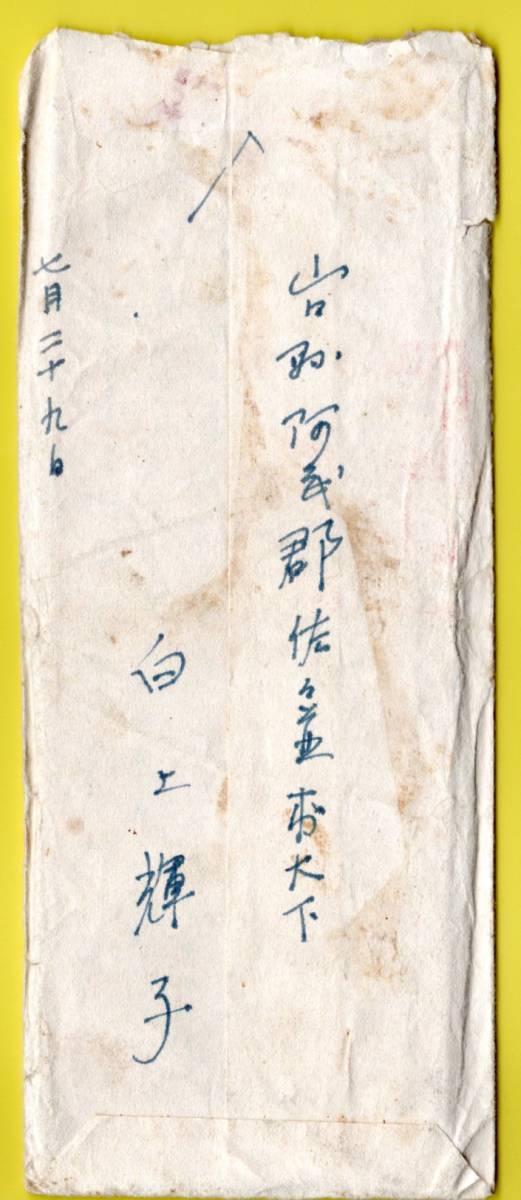 山口縣阿武郡佐々並村大下
白上輝子
七月二十九日